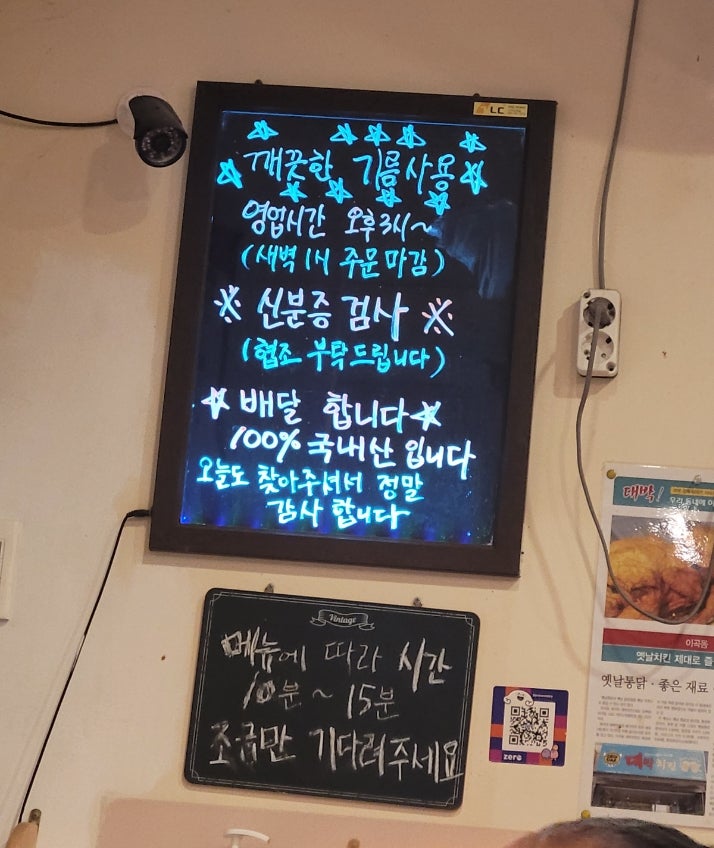 LC
깨끗한 기름사용
영업시간 오후3시~
(새벽 1시 주문 마감)
※ 신분증 검사 ※
(협조 부탁드립니다)
☆ 배달 합니다 ☆
100% 국내산 입니다
오늘도 찾아주셔서 정말
감사 합니다
Vintage
메뉴에 따라 시간
10분 ~ 15분
조금만 기다려주세요
zero
대박!
우리 동네에
이곡동
옛날치킨 제대로 즐
옛날통닭·좋은 재료